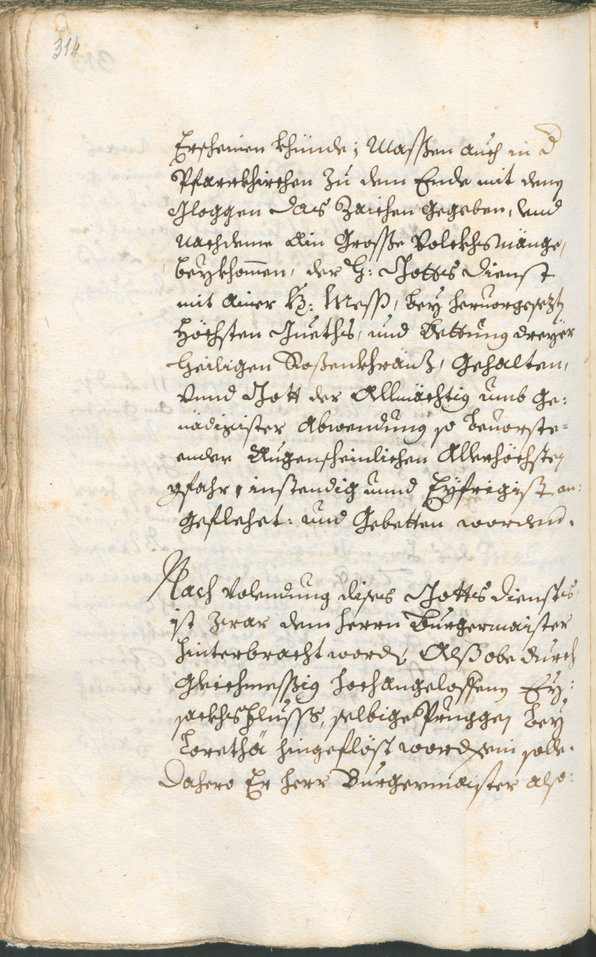 314
Erscheinen khünde; Massen auch in d
Pfarrkhirchen zu dem Ende mit deng
Gloggen das Zaichen gegeben, vnd
nachdeme ain Grosse Volckhsmänge,
beykhomen, der H: Gotts Dienst
mit ainer H: Mess, bey heruorgesezt
höchsten Gueths, und Bettung dreyer
heiligen Rosenkhranz, gehalten,
vnnd Gott der Allmächtig umb ge:
nädigister Abwendung so beuorste-
ender Augenscheinlichen Allerhöchsten
gfahr, instendig vnnd Eyfrigist an:
geflehet: und Gebetten worden.
Nach Volendung dises Gotts Diensts
ist zwar dem herrn Burgermaister
hinterbracht worden, Alß obe durch
gleichmessig hochangeloffeng Ey:
sackhsflusss, selbige Pruggen bey
Loretha hingeflöst worden sein solle.
Dahero Er herr Burgermaister also: